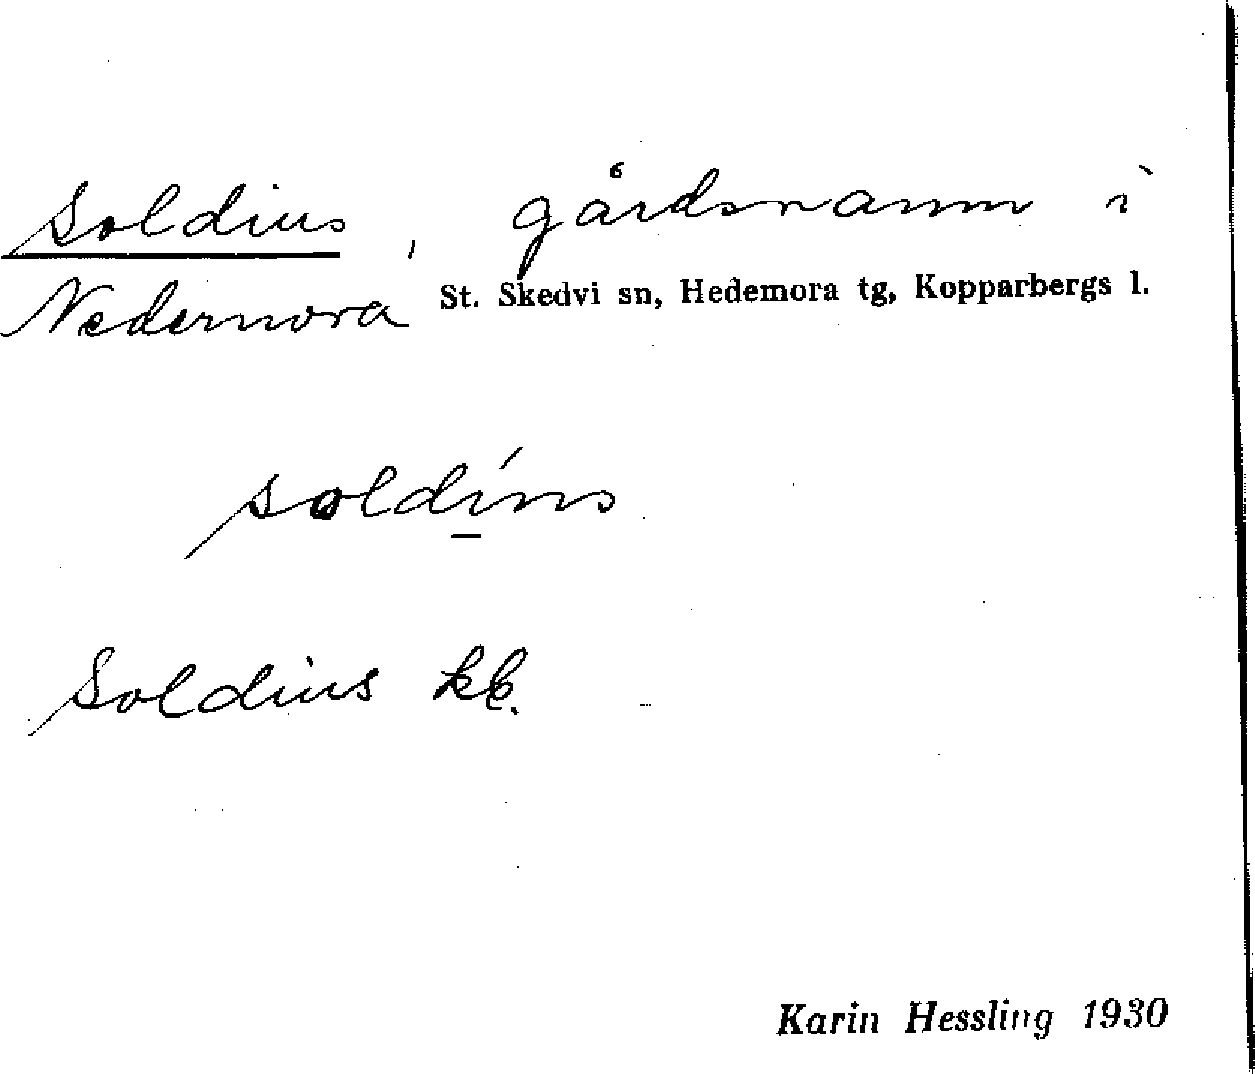 Soldins, gårdsnamn i
Nedernora St. Skedvi sn, Hedemora tg, Kopparbergs l.
soldíns
Soldins kb.
Karin Hessling 1930